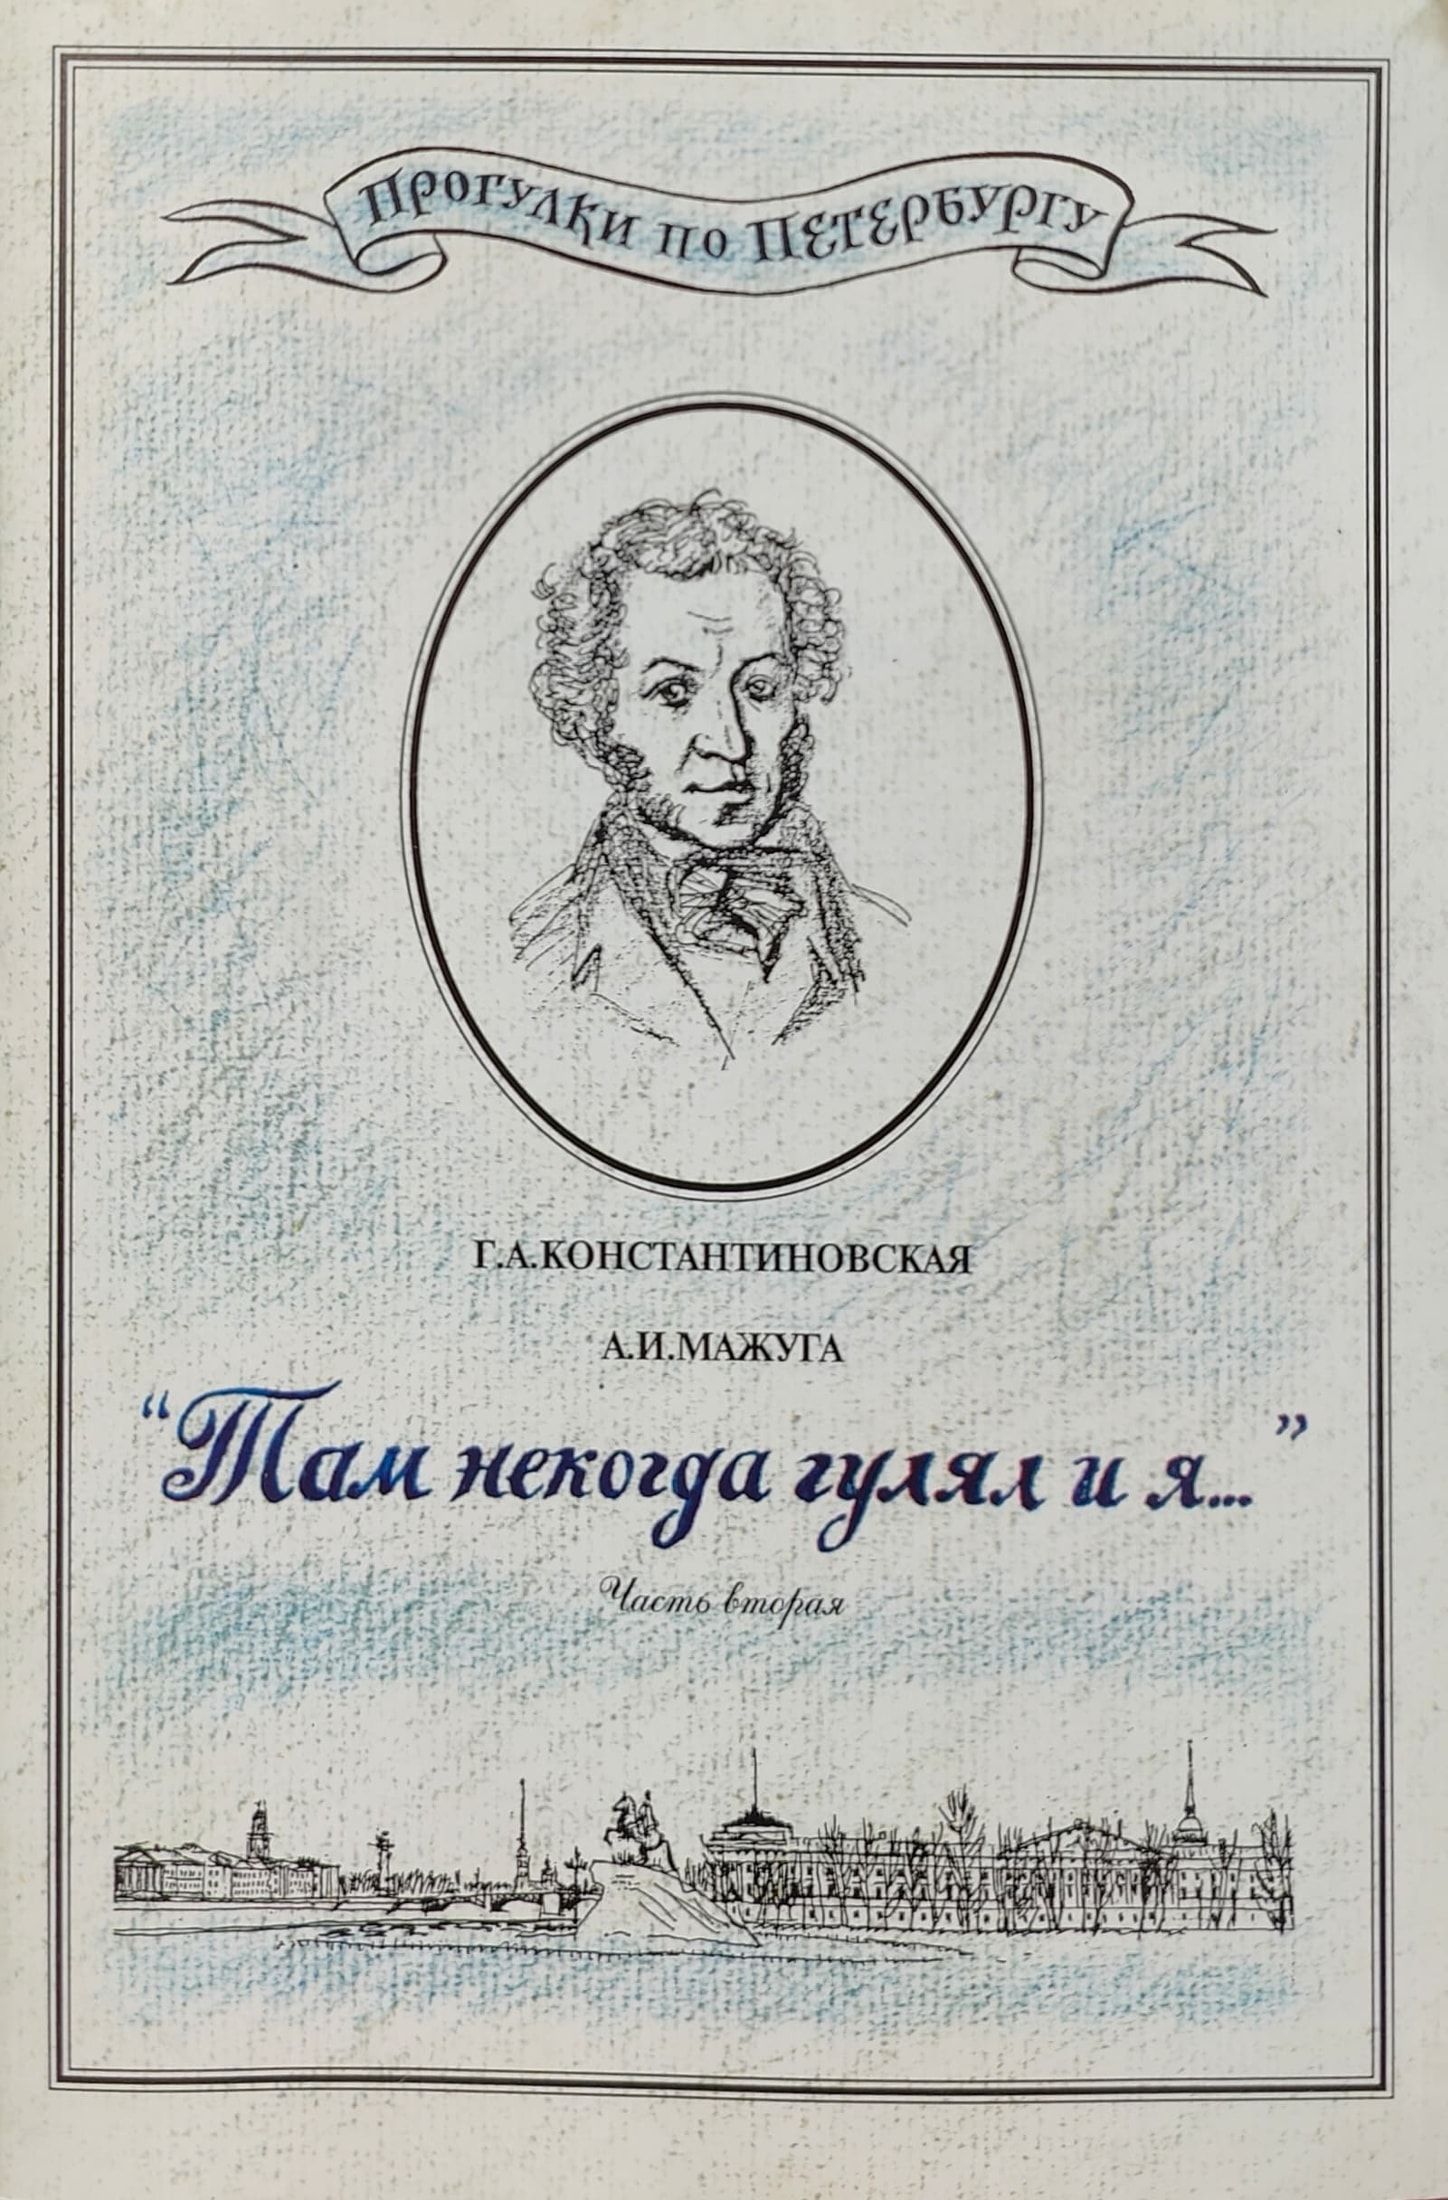 Прогулки по Петербургу
Г.А.КОНСТАНТИНОВСКАЯ
А.И.МАЖУГА
“Там некогда гулял и я...”
Часть вторая